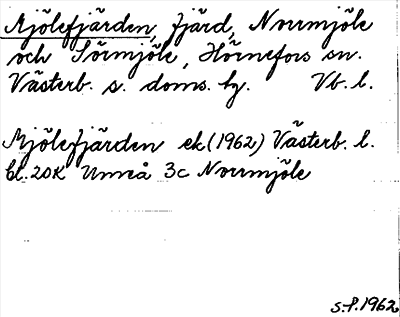 Mjölefjärden, fjärd, Norrmjöle
och Sörmjöle, Hörnefors sn.
Västerb. s. doms. hg. Vb. l.
Mjölefjärden ek (1962) Västerb. l.
bl. 20K Umeå 3c Norrmjöle
s.f. 1962